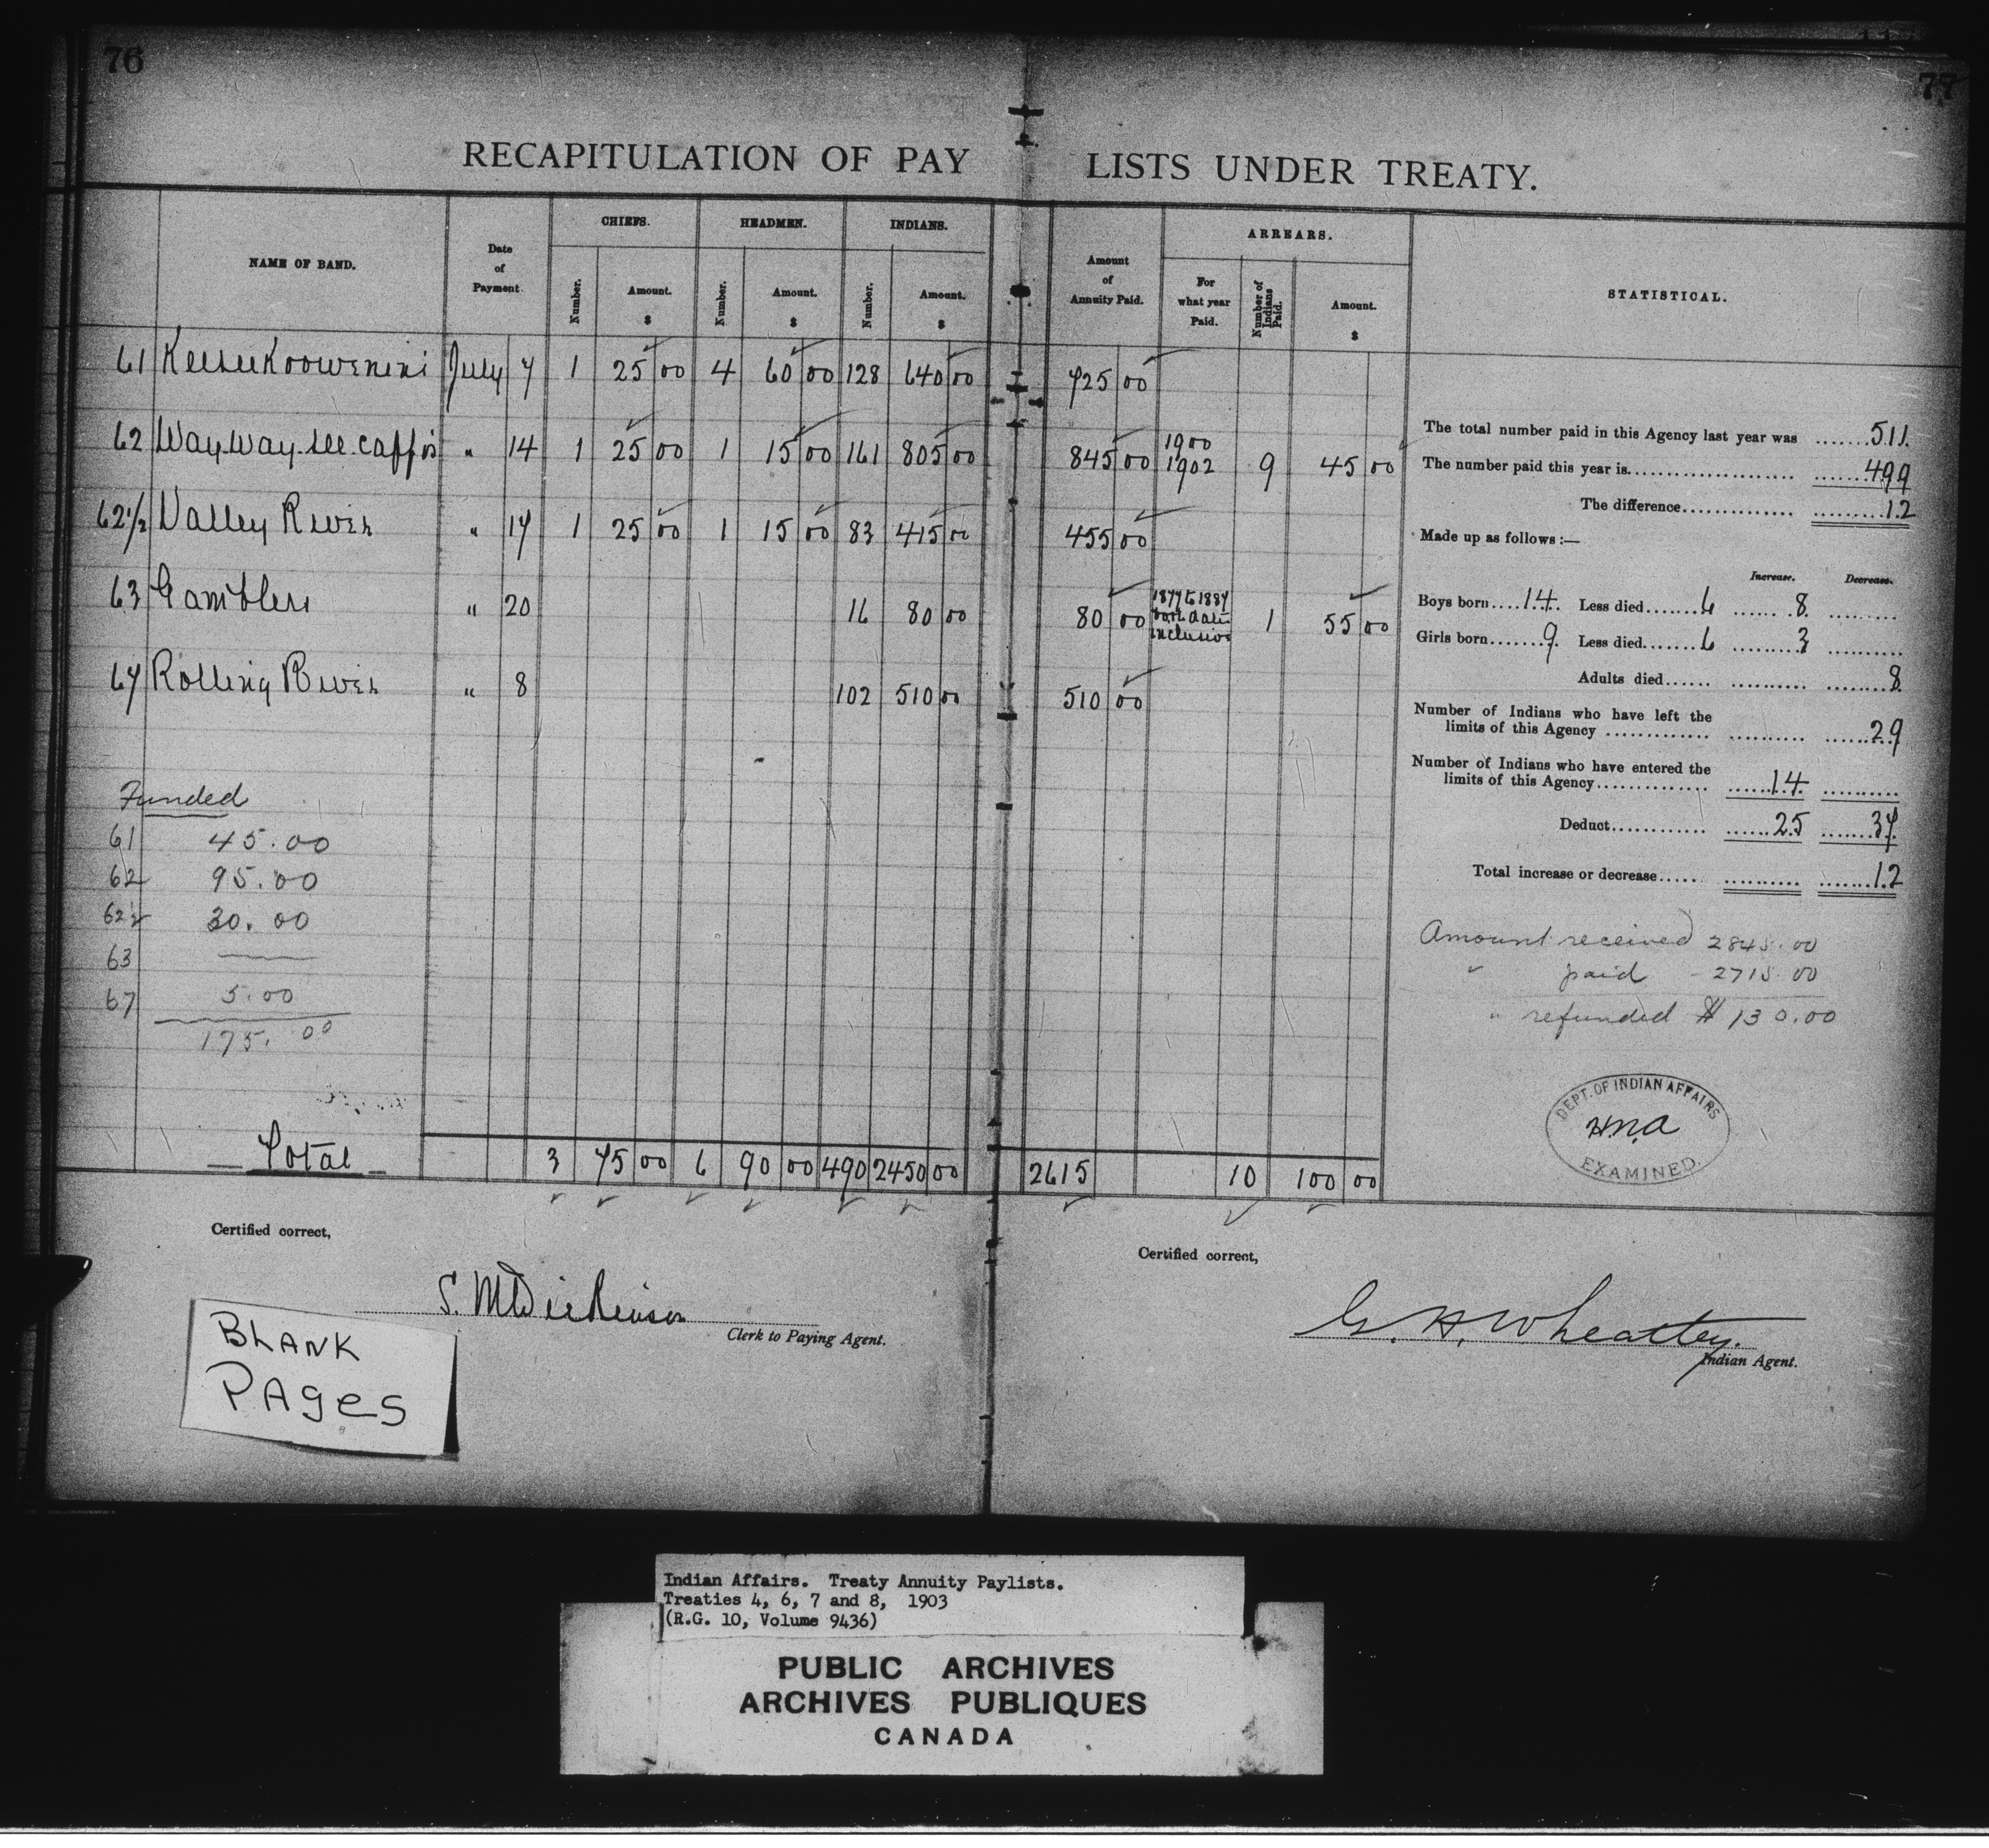 76
77
RECAPITULATION OF PAY LISTS UNDER TREATY.
NAME OF BAND.
Date of Payment
CHIEFS.
HEADMEN.
INDIANS.
Number.
Amount. $
Number.
Amount. $
Number.
Amount. $
Amount of Annuity Paid.
ARREARS.
For what year Paid.
Number of Indians Paid.
Amount. $
STATISTICAL.
61 Keeseekoowenini July 7 1 25 00 4 60 00 128 640 00 725 00
62 Way-way-see-cappo " 14 1 25 00 1 15 00 161 805 00 845 00 1900 1902 9 45 00
62½ Valley River " 17 1 25 00 1 15 00 83 415 00 455 00
63 Gamblers " 20 16 80 00 80 00 1877 to 1887 both dates inclusive 1 55 00
67 Rolling River " 8 102 510 00 510 00
Funded
61 45.00
62 95.00
62½ 30.00
63 —
67 5.00
175.00
Total 3 75 00 6 90 00 490 2450 00 2615 10 100 00
The total number paid in this Agency last year was ....... 511
The number paid this year is ....... 499
The difference ....... 12
Made up as follows :—
Increase. Decrease.
Boys born .... 14 Less died ....... 6 ....... 8
Girls born ....... 9 Less died ....... 6 ....... 3
Adults died ...... 8
Number of Indians who have left the
limits of this Agency ............ 29
Number of Indians who have entered the
limits of this Agency ............ 14
Deduct ............ 25 ....... 37
Total increase or decrease ...... 12
Amount received 2845.00
" paid - 2715.00
" refunded $130.00
DEPT. OF INDIAN AFFAIRS
H.M.A
EXAMINED
Certified correct,
S. M. Dickinson
Clerk to Paying Agent.
Certified correct,
G. H. Wheatley.
Indian Agent.
BLANK
PAgeS
Indian Affairs. Treaty Annuity Paylists.
Treaties 4, 6, 7 and 8, 1903
(R.G. 10, Volume 9436)
PUBLIC ARCHIVES
ARCHIVES PUBLIQUES
CANADA